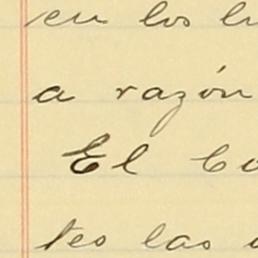 en los
a razón
El
tes las